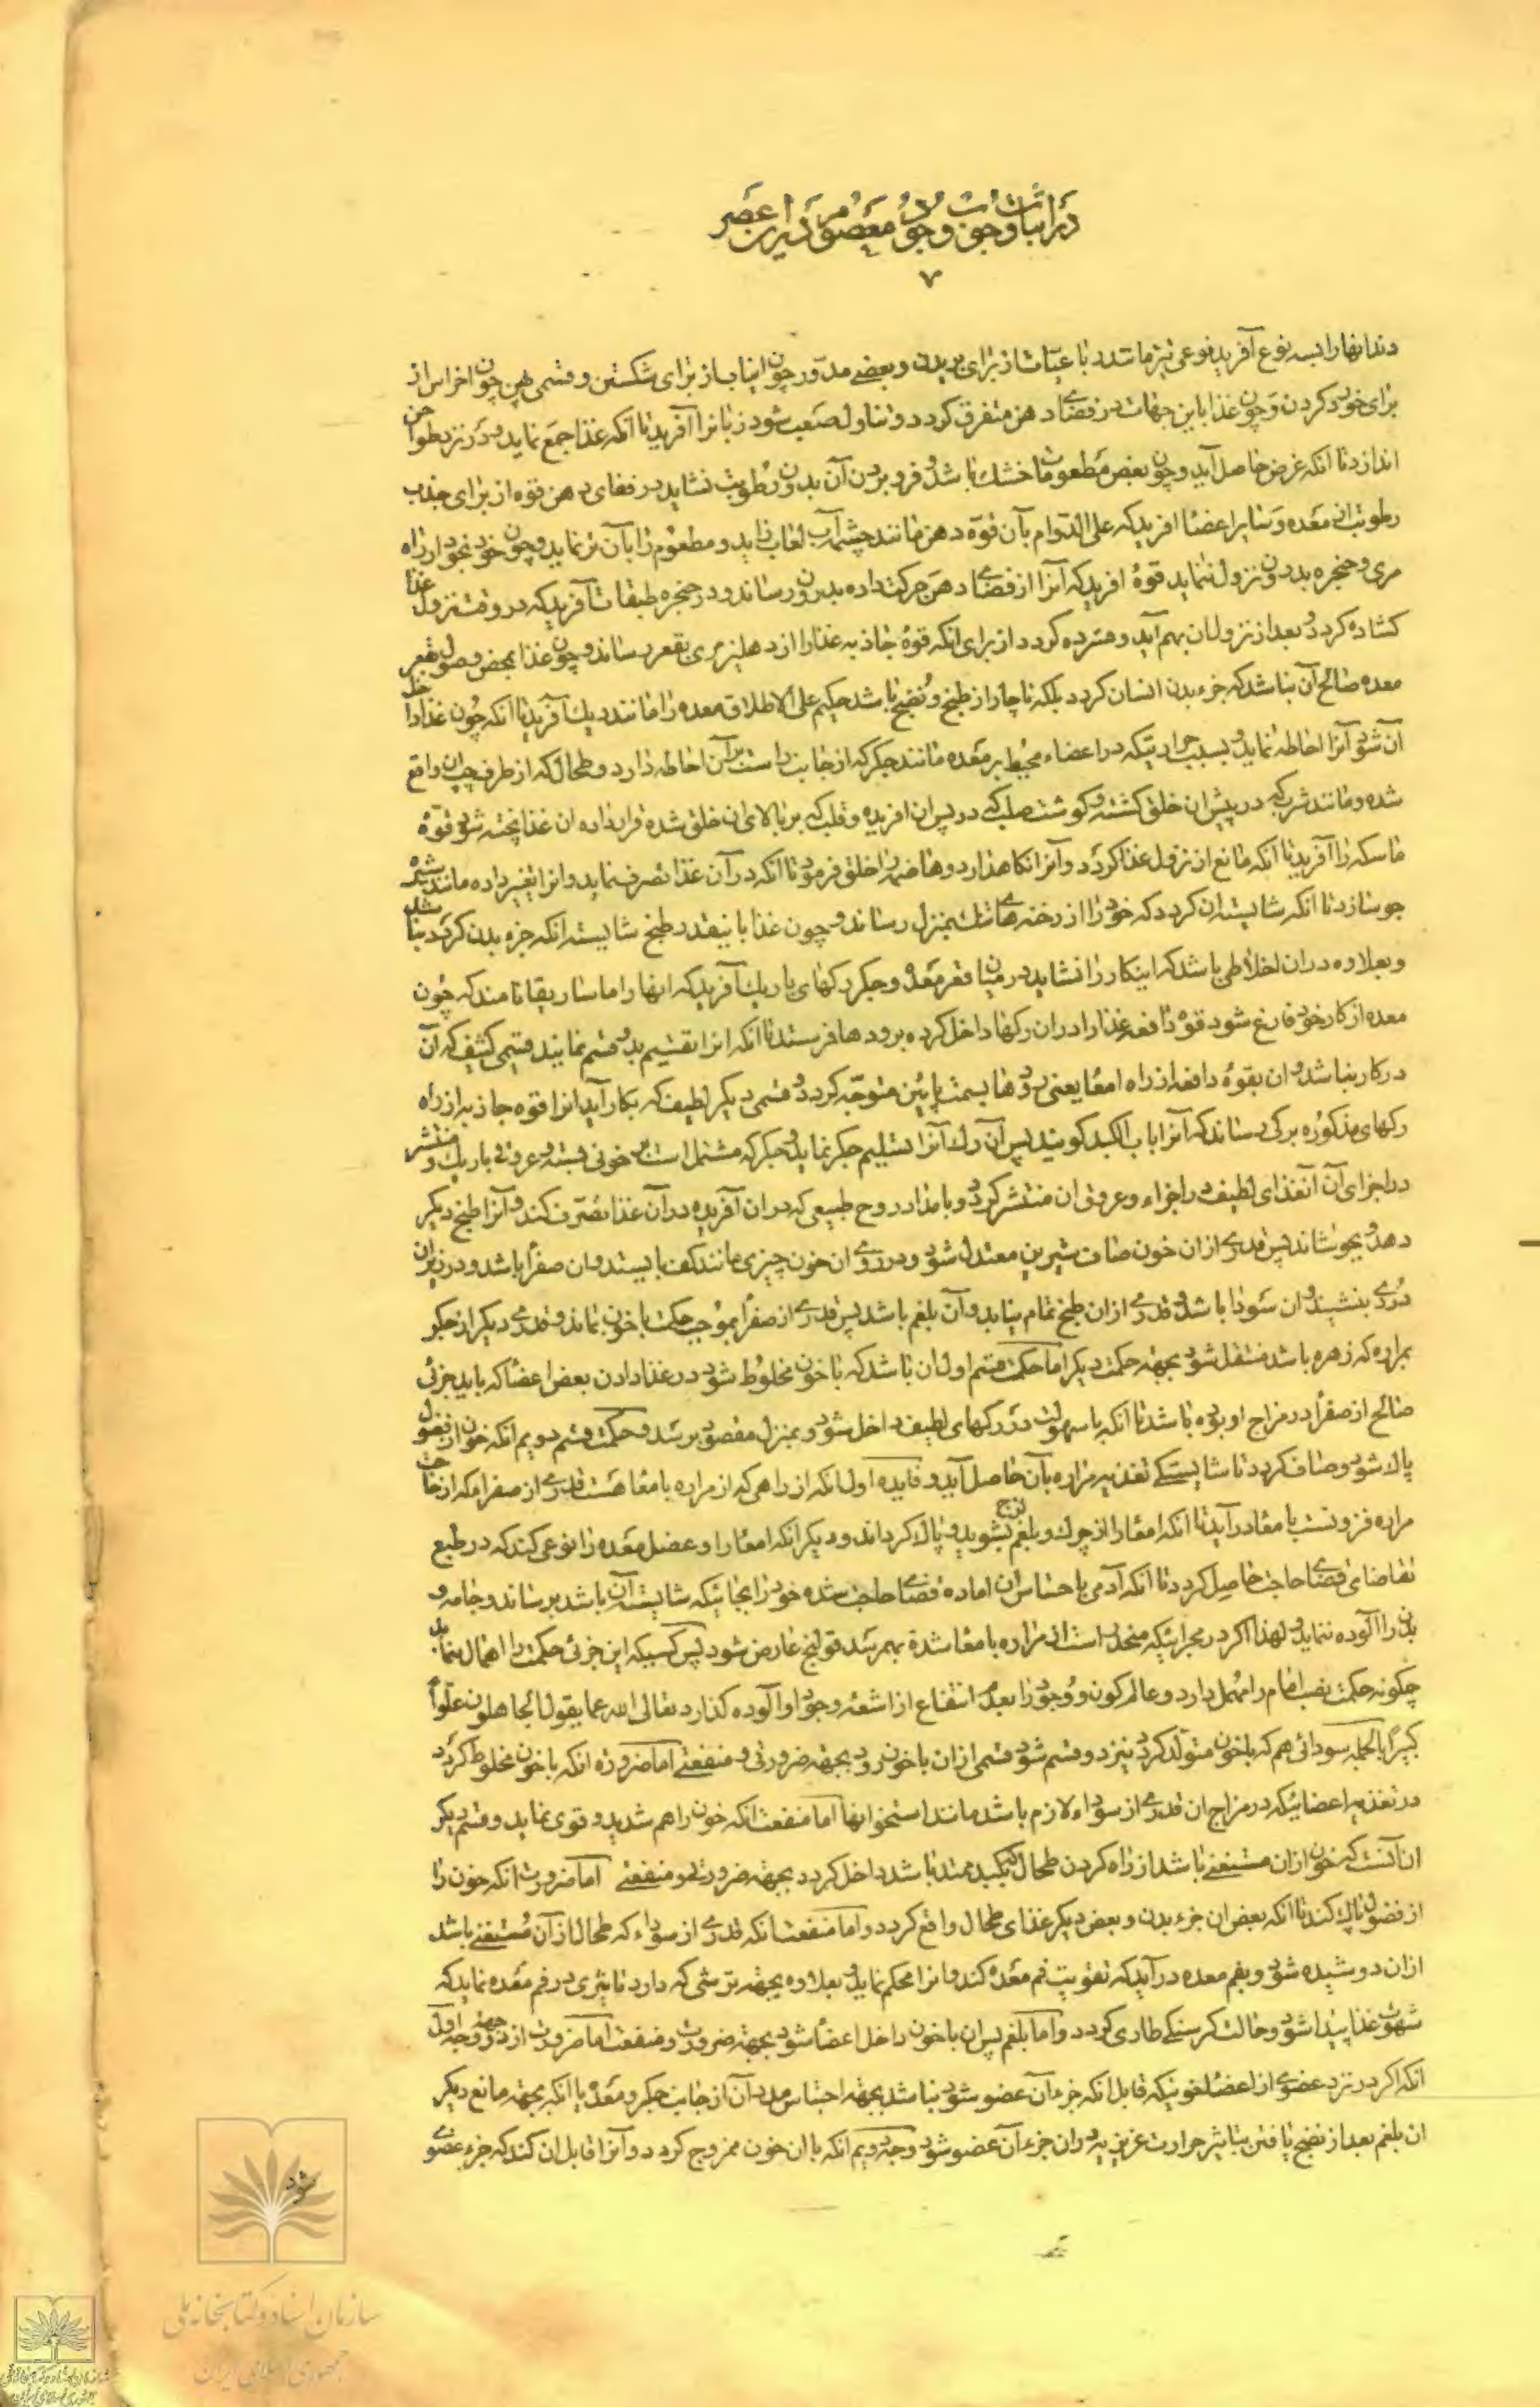 در اثبات وجوب وجود معصوم در این عصر
۷
دندانها را بسه نوع آفرید نوعی تیز مانند رباعیات از برای بریدن و بعضی مدور چون انیاب از برای شکستن و قسمی پهن چون اضراس از
برای خورد کردن و چون غذا باین جهات در فضای دهن متفرق کردد و تناول صعب شود زبانرا آفرید تا آنکه غذا جمع نماید و در نزد طواحن
اندازد تا آنکه غرض حاصل آید و چون بعض مطعومات خشك باشد و فرو بردن آن بدون رطوبت نشاید در فضای دهن قوه از برای جذب
رطوبت از معده و سایر اعضا افرید که علی الدوام بآن قوة دهن مانند چشمه آب لعاب زاید و مطعوم را بآن تر نماید و چون خود بخود از راه
مری و حنجره بدرون نزول ننماید قوهٔ افرید که آنرا از فضای دهن حرکت داده بدرون رساند و در حنجره طبقات آفرید که در وقت نزول غذا
کشاده کردد و بعد از نزول ان بهم آید و فشرده کردد از برای انکه قوهٔ جاذبه غذا را از دهلیز مری بقعر رساند و چون غذا بمحض وصول بقعر
معده صالح آن نباشد که جزء بدن انسان کردد بلکه ناچار از طبخ و نضج باشد حکیم علی الاطلاق معده را مانند دیك آفرید تا آنکه چون غذا داخل
آن شود آنرا احاطه نماید و بسبب حرارتیکه در اعضاء محیط بر معده مانند جکر که از جانب راست بر آن احاطه دارد و طحال که از طرف چپ ان واقع
شده و مانند ثرب که در پیش ان خلق کشته و کوشت صلب که در پس ان افریده و قلب که بر بالای ان خلق شده قرار داده ان غذا پخته شود و قوهٔ
ماسکه را آفرید تا آنکه مانع از نزول غذا کردد و آنرا نکاهدارد و هاضمه را خلق فرمود تا آنکه در آن غذا تصرف نماید و انرا تغییر داده مانند کشك
جو سازد تا آنکه شایسته ان کردد که خود را از رخنه های تنك بمنزل رساند و چون غذا باینقدر طبخ شایسته انکه جزء بدن کردد نباشد
و بعلاوه در ان اخلاطی باشد که اینکار را نشاید در میان قعر معده و جکر رکهای باریك آفرید که انها را ماساریقا نامند که چون
معده از کار خود فارغ شود قوه دافعه غذا را در ان رکها داخل کرده برودها فرستد تا آنکه انرا تقسیم بدو قسم نمایند قسمی کثیف که آن
در کار نباشد و ان بقوهٔ دافعه از راه امعا یعنی رودها بسمت پائین متوجه کردد و قسمی دیکر لطیف که بکار آید انرا قوه جاذبه از راه
رکهای مذکوره برکی رساند که آنرا باب الکبد کویند پس آن رك آنرا تسلیم جکر نماید و جکر که مشتمل است بر خونی بسته و عروقی باریك و منتشر
در اجزای آن آنغذای لطیف در اجزاء و عروق ان منتشر کردد و بامداد روح طبیعی که در ان آفریده در آن غذا تصرف کند و آنرا طبخ دیکر
دهد و بجوشاند پس قدری از ان خون صاف شیرین معتدل شود و در روی ان خون چیزی مانند کف بایستد و ان صفرا باشد و در زیر ان
دُردی بنشیند و ان سودا باشد و قدری از ان طبخ تمام نیابد و آن بلغم باشد پس قدری از صفرا بموجب حکمت با خون بماند و قدری دیکر از جکر
بمراره که زهره باشد منتقل شود بجهة حکمت دیکر اما حکمت قسم اول ان باشد که با خون مخلوط شود در غذا دادن بعض اعضا که باید جزئی
صالح از صفرا در مزاج او بوده باشد تا آنکه باسهولت در رکهای لطیف داخل شود و بمنزل مقصود برسد و حکمت قسم دویم انکه خون از فضول
پاك شود و صاف کردد تا شایستکی تغذیه مراره بآن حاصل آید و فایده اول انکه از راهی که از مراره بامعا هست قدری از صفرا که از حاجت
مراره فزونست بامعا در آید تا آنکه امعا را از چرك و بلغم لزج بشوید و پاك کرداند و دیکر انکه امعا را و عضل معده را نوعی کند که در طبع
تقاضای قضای حاجت حاصل کردد تا انکه آدمی باحساس ان اماده قضای حاجت شده خود را بجائیکه شایسته آن باشد برساند و جامه و
بدن را آلوده ننماید و لهذا اکر در مجرائیکه منحدر است از مراره بامعا سُده بهم رسد قولنج عارض شود پس کسیکه این جزئی حکمت را اهمال ننماید
چکونه حکمت نصب امام را مهمل دارد و عالم کون و وجود را بعدم انتفاع از اشعهٔ وجود او آلوده کذارد تعالی الله عما یقول الجاهلون علواً
کبیراً بالجمله سودائی هم که با خون متولد کردد نیز دو قسم شود قسمی از ان با خون رود بجهة ضرورتی و منفعتی اما ضرورة انکه با خون مخلوط کردد
در تغذیه اعضائیکه در مزاج ان قدری از سوداء لازم باشد مانند استخوانها اما منفعت انکه خون را هم شدید و قوی نماید و قسم دیکر
ان آنست که خون از ان مستغنی باشد از راه کردن طحال که بکبد ممتد باشد داخل کردد بجهة ضرورتی و منفعتی اما ضرورت انکه خون را
از فضول پاك کند تا آنکه بعض ان جزء بدن و بعض دیکر غذای طحال واقع کردد و اما منفعت انکه قدری از سوداء که طحال از آن مستغنی باشد
از ان دوشیده شود و بفم معده در آید که تقویت فم معده کند و انرا محکم نماید و بعلاوه بجهة ترشی که دارد تاثیری در فم معده نماید که
شهوت غذا پیدا شود و حالت کرسنکی طاری کردد و اما بلغم پس ان با خون داخل اعضا شود بجهة ضرورت و منفعت اما ضرورت از دو جهة وجه اول
انکه اکر در نزد عضوی از اعضا خونیکه قابل انکه جزء آن عضو شود نباشد بجهة احتباس مدد آن از جانب جکر و معده یا انکه بجهة مانع دیکر
ان بلغم بعد از نضج یافتن بتاثیر حرارت غریزیه در ان جزء آن عضو شود وجه دویم انکه با ان خون ممزوج کردد و آنرا قابل ان کند که جزء عضوی
شود
سازمان اسناد و کتابخانه ملی
جمهوری اسلامی ایران